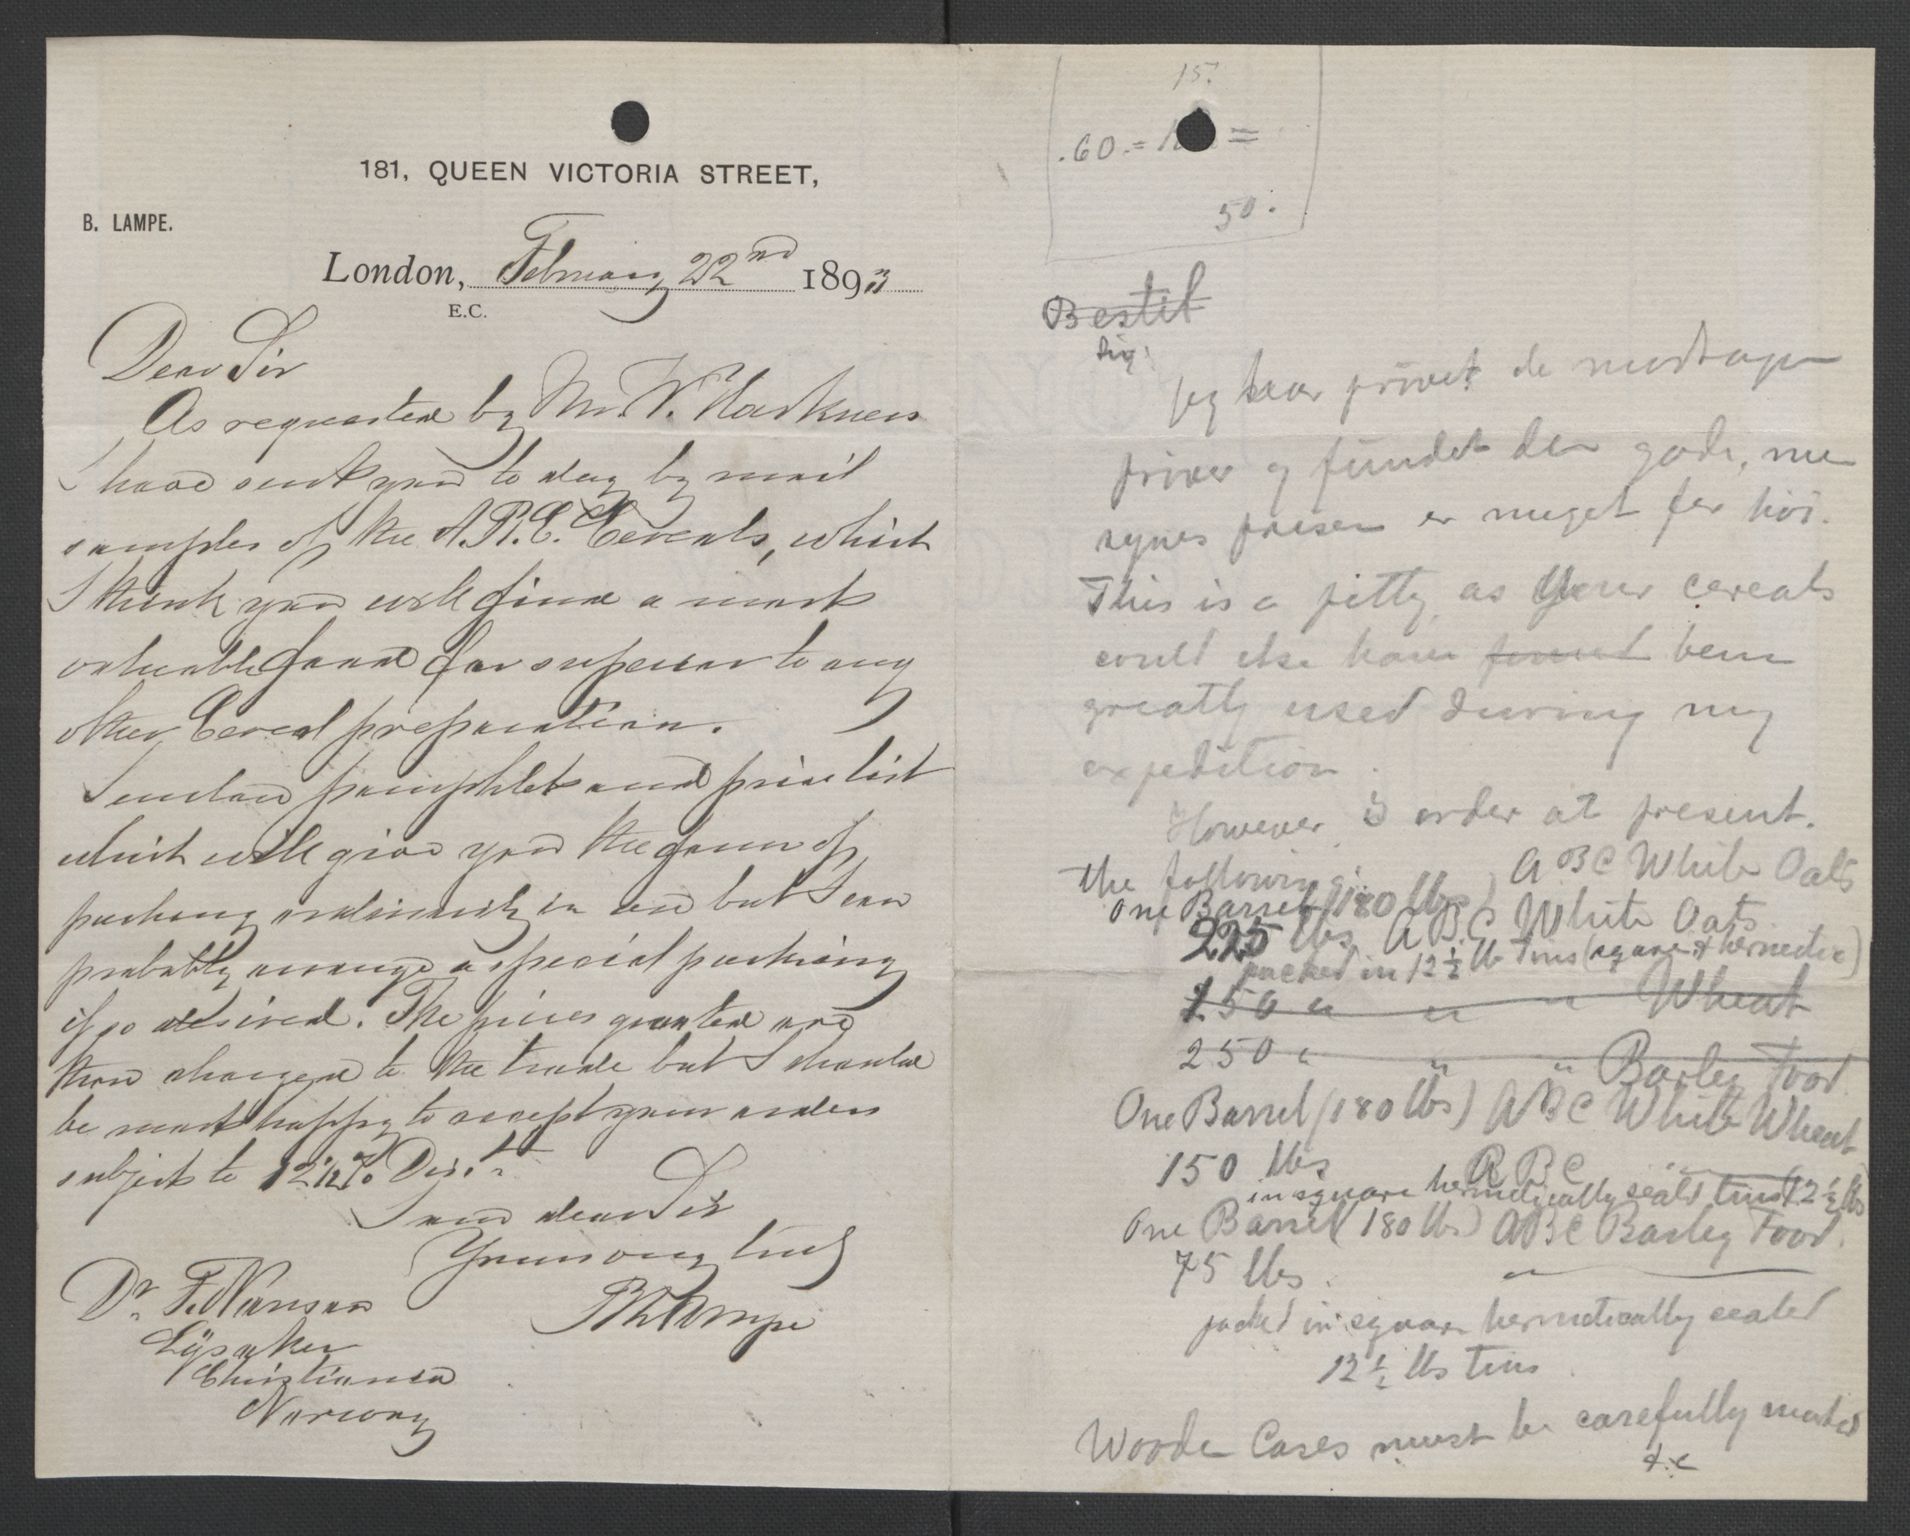 181, QUEEN VICTORIA STREET,
B. LAMPE.
London, February 22nd 1893
E.C.
Dear Sir
As requested by Mr. W. Harkness
I have sent you to day by mail
samples of the A.B.C. Cereals, which
I think you will find a most
valuable food far superior to any
other Cereal preparation.
I enclose pamphlet and price list
which will give you the form of
packing ordinarily in use but I can
probably arrange a special packing
if so desired. The prices quoted are
those charged to the trade but I should
be most happy to accept your orders
subject to 12 1/2 % Disct.
I am dear Sir
Yours very truly
B Lampe
Dr. F. Nansen
Lysaker
Christiania
Norway
15.
.60.=
=
50.
Bestil
Sir,
Jeg har prøvet de modtagne
prøver og fundet dem gode, men
synes prisen er meget for høi.
This is a pitty as Your cereals
could else have found been
greatly used during my
expedition.
However, I order at present.
the following:
A B C White Oats
One Barrel (180 lbs)
225 lbs A.B.C White Oats
packed in 12 1/2 lb Tins (square & hermetic)
150 " " " Wheat
250 " " " Barley Food
One Barrel (180 lbs) A B C White Wheat
150 lbs A B C
in square hermetically seald tins (12 1/2 lbs
One Barrel (180 lbs) A B C Barley Food.
75 lbs. "
packed in square hermetically sealed
12 1/2 lbs Tins.
Wooden Cases must be carefully marked
&c